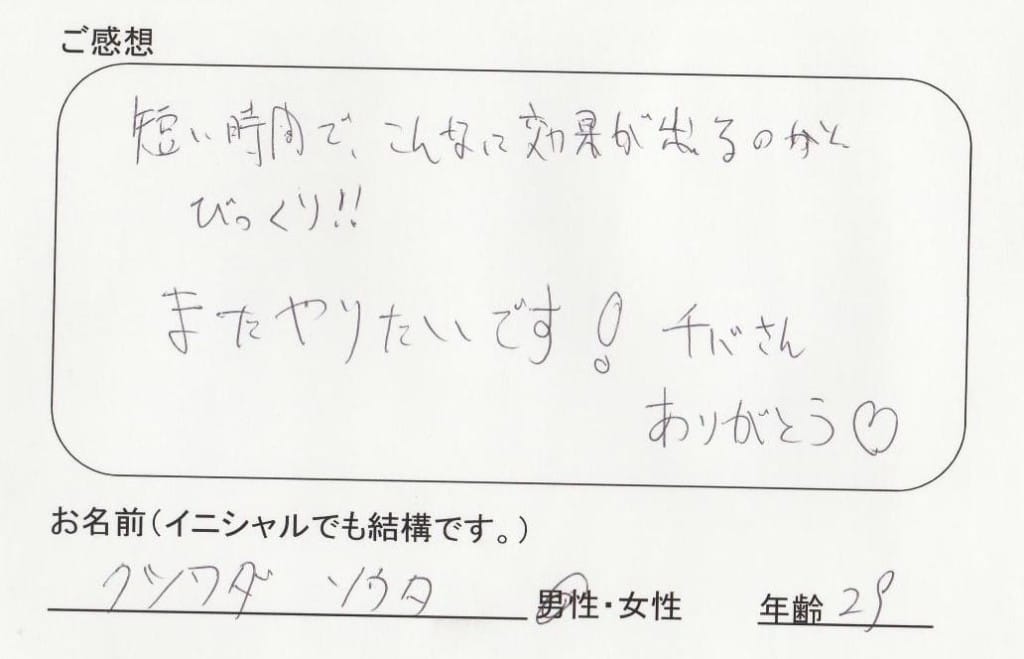 ご感想
短い時間で、こんなに効果が出るのかと
びっくり!!
またやりたいです! チバさん
ありがとう♡
お名前(イニシャルでも結構です。)
クツワダ ソウタ 男性・女性 年齢 29